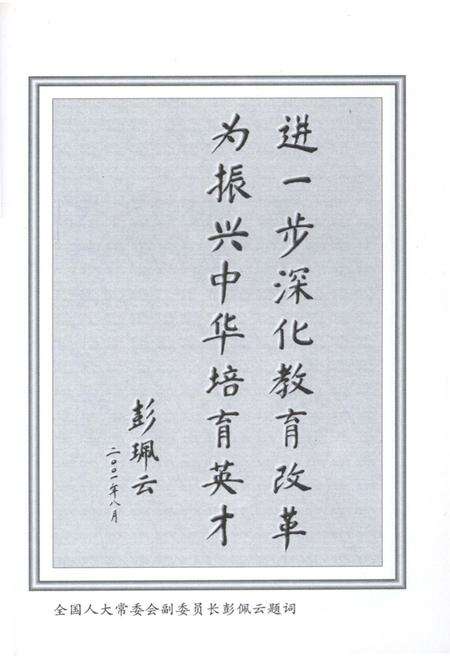 进一步深化教育改革
为振兴中华培育英才
彭珮云
二〇〇一年八月
全国人大常委会副委员长彭佩云题词